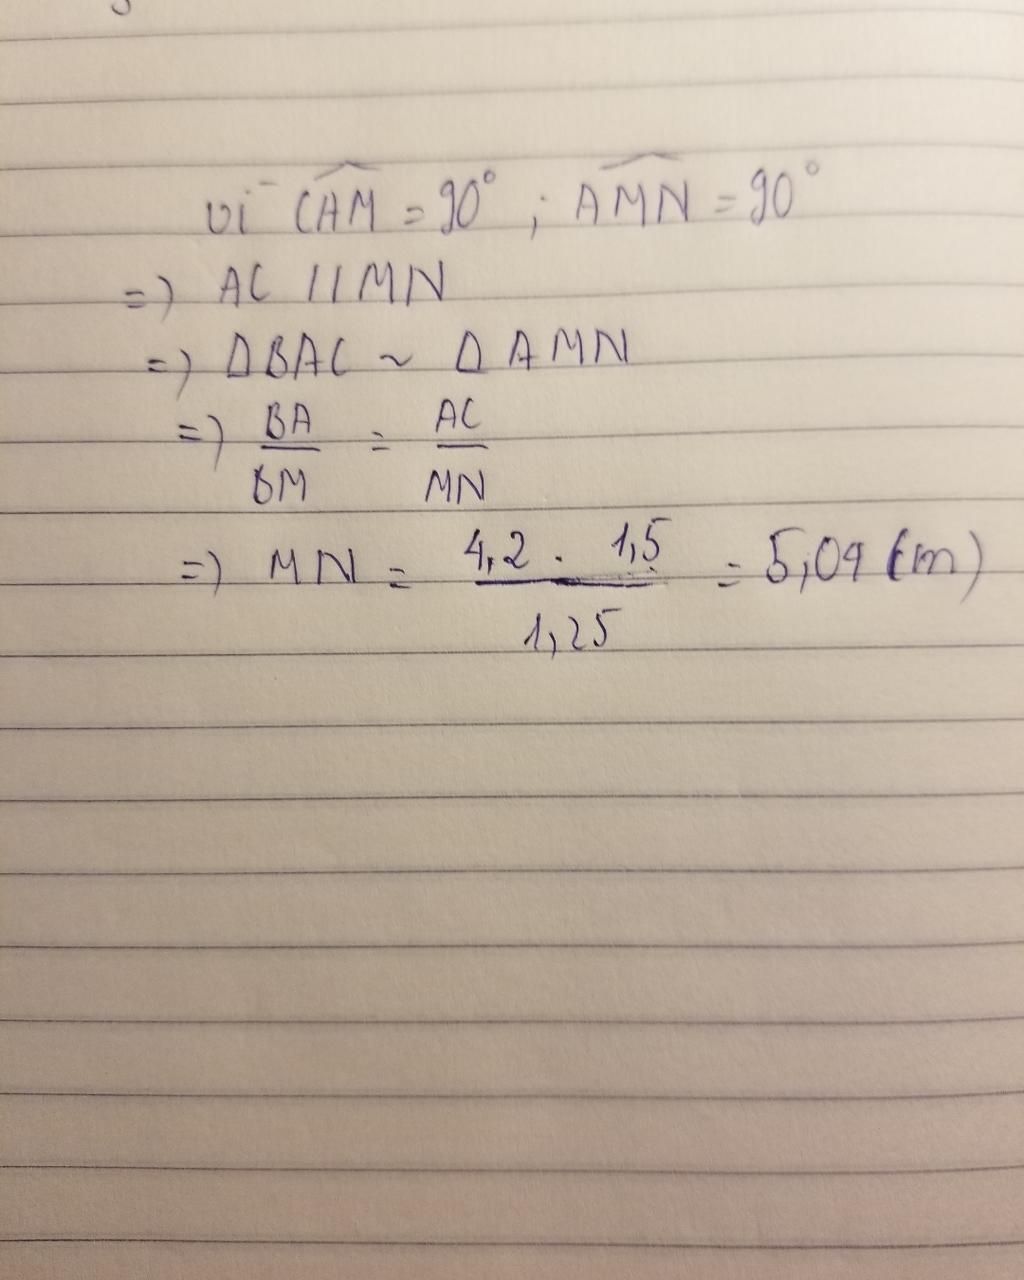 vì CAM = 90° ; AMN = 90°
=> AC // MN
=> Δ BAC ~ Δ AMN
=> BA/BM = AC/MN
=> MN = 4,2 . 1,5 / 1,25 = 5,04 (m)